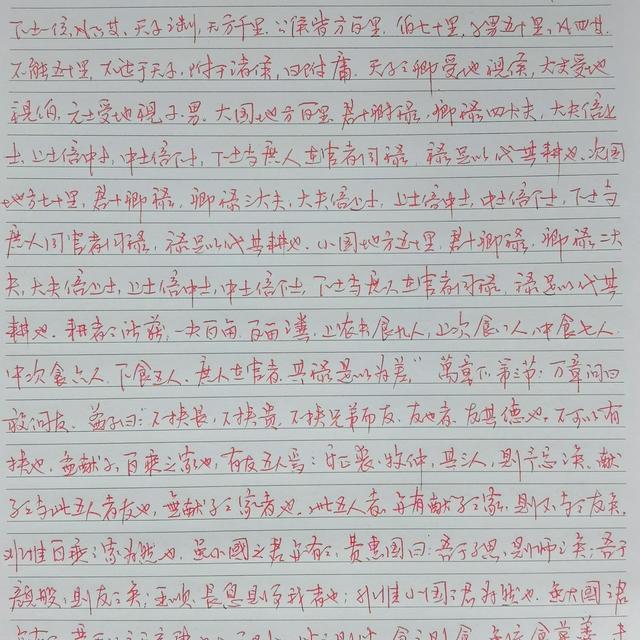 下士一位，凡六等。天子之制，地方千里，公侯皆方百里，伯七十里，子男五十里，凡四等。
不能五十里，不达于天子，附于诸侯，曰附庸。天子之卿受地视侯，大夫受地
视伯，元士受地视子、男。大国地方百里，君十卿禄，卿禄四大夫，大夫倍上
士，上士倍中士，中士倍下士，下士与庶人在官者同禄，禄足以代其耕也。次国
地方七十里，君十卿禄，卿禄三大夫，大夫倍上士，上士倍中士，中士倍下士，下士与
庶人同官者同禄，禄足以代其耕也。小国地方五十里，君十卿禄，卿禄二大
夫，大夫倍上士，上士倍中士，中士倍下士，下士与庶人在官者同禄，禄足以代其
耕也。耕者之所获，一夫百亩，百亩之粪，上农夫食九人，上次食八人，中食七人，
中次食六人，下食五人。庶人在官者，其禄是以为差。”万章下第三节：万章问曰
敢问友。孟子曰：不挟长，不挟贵，不挟兄弟而友。友也者，友其德也，不可以有
挟也。孟献子，百乘之家也，有友五人焉：乐正裘，牧仲，其三人，则予忘之矣。献
子之与此五人者友也，无献子之家者也。此五人者，亦有献子之家，则不与之友矣。
非惟百乘之家为然也，虽小國之君亦有之。费惠国曰：吾于子思，则师之矣；吾于
颜般，则友之矣；王顺、長息则事我者也；非惟小国之君为然也，虽大國之君